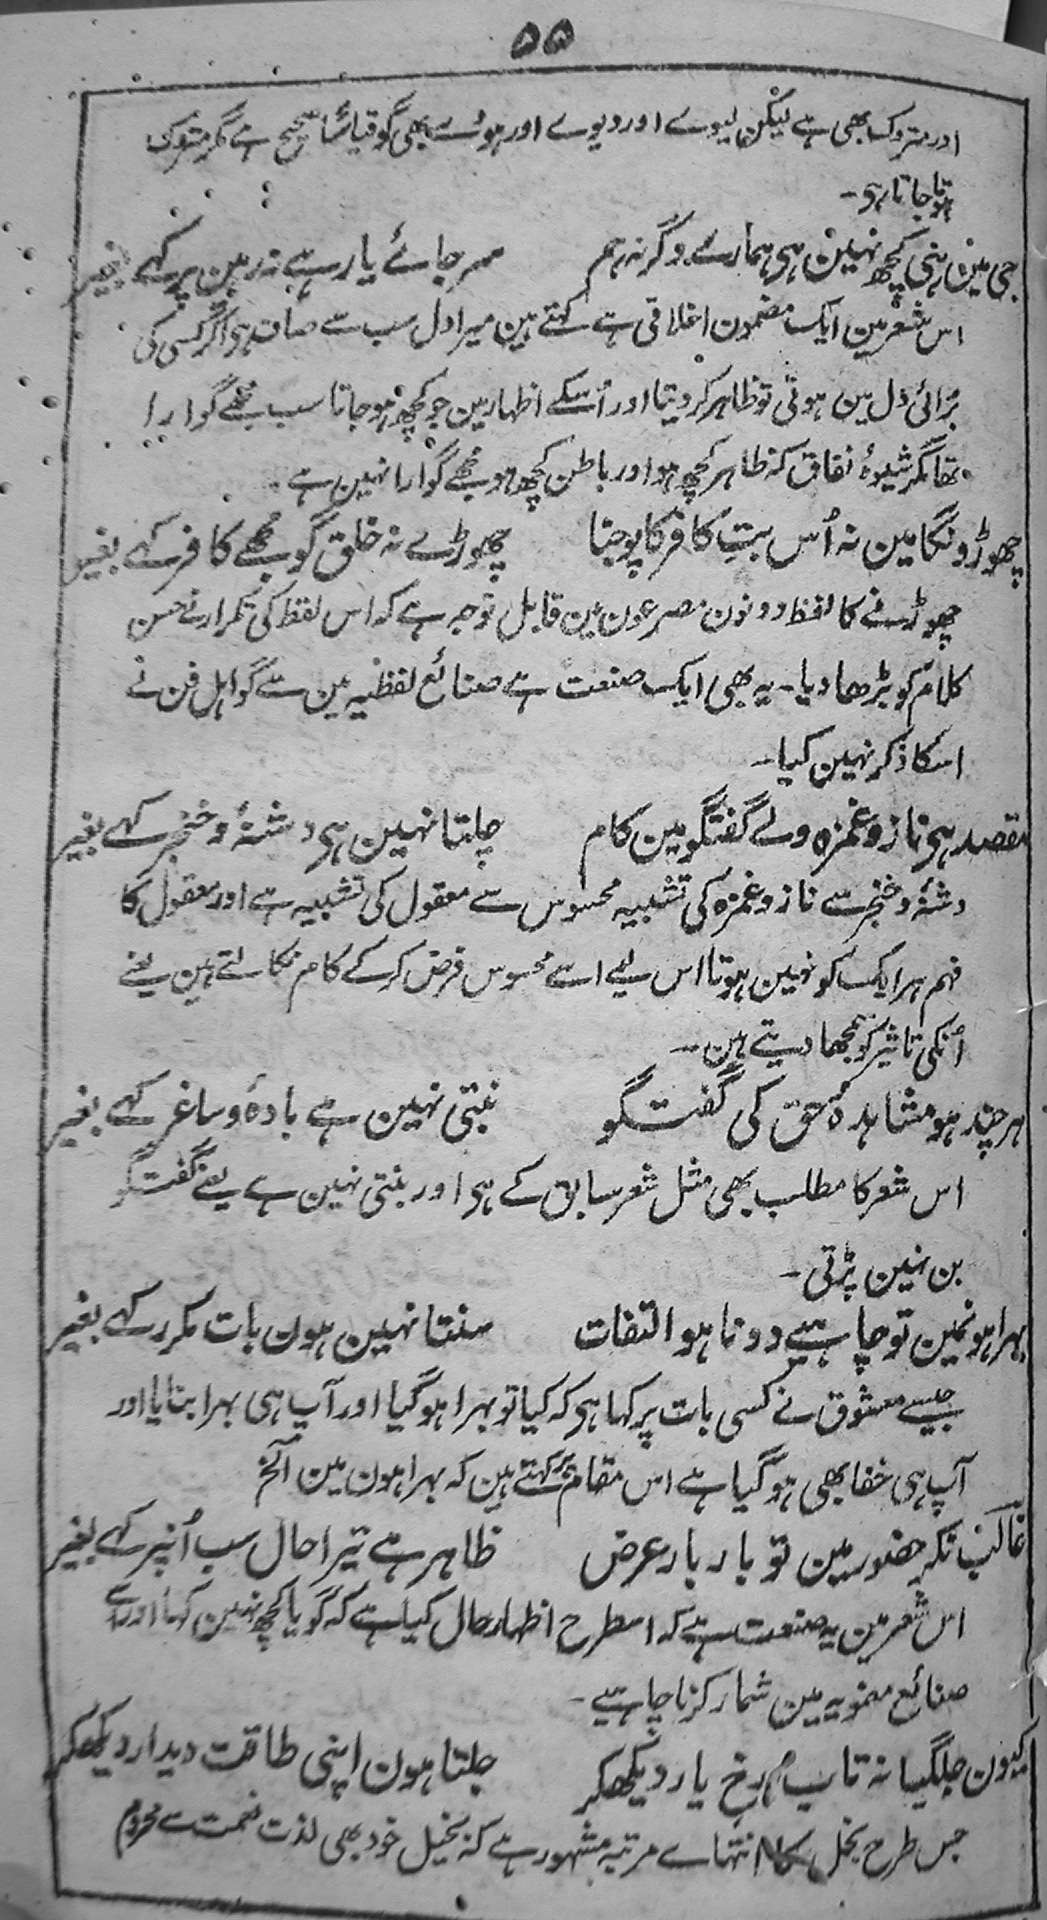 ۵۵
اور متروک بھی ہے لیکن لیوے اور دیوے اور ہووے بھی گو قیاساً صحیح ہے مگر متروک
ہوتا جاتا ہی۔
جی مین ہی کچھ نہین ہی ہمارے وگرنہ ہم سر جائے یا رہے نہ رہین پر کہے بغیر
اس شعر مین ایک مضمون اخلاقی ہے کہتے ہین میرا دل سب سے صاف ہی اگر کسی کی
بُرائی دل مین ہوتی تو ظاہر کر دیتا اور اُسکے اظہار مین جو کچھ ہو جاتا سب مجھے گوارا
تھا مگر شیوۂ نفاق کہ ظاہر کچھ ہو اور باطن کچھ ہو مجھے گوارا نہین ہے۔
چھوڑونگا مین نہ اُس بتِ کافر کا پوجنا چھوڑے نہ خلق گو مجھے کافر کہے بغیر
چھوڑنے کا لفظ دونون مصرعون مین قابل توجہ ہے کہ اس لفظ کی تکرار نے حسن
کلام کو بڑھا دیا۔ یہ بھی ایک صنعت ہے صنائع لفظیہ مین سے گو اہل فن نے
اسکا ذکر نہین کیا۔
مقصد ہی ناز و غمزہ ولے گفتگو مین کام چلتا نہین ہی دشنۂ و خنجر کہے بغیر
دشنۂ و خنجر سے ناز و غمزہ کی تشبیہ محسوس سے معقول کی تشبیہ ہے اور معقول کا
فہم ہر ایک کو نہین ہوتا اس لیے اسے محسوس فرض کرکے کام نکالتے ہین یعنے
اُنکی تاثیر کو سمجھا دیتے ہین۔
ہر چند ہو مشاہدۂ حق کی گفتگو بنتی نہین ہے بادۂ و ساغر کہے بغیر
اس شعر کا مطلب بھی مثل شعر سابق کے ہی اور بنتی نہین ہے یعنے گفتگو
بن نہین پڑتی۔
بہرا ہونمین تو چاہیے دونا ہو التفات سنتا نہین ہون بات مکرر کہے بغیر
جیسے معشوق نے کسی بات پر کہا ہی کہ کیا تو بہرا ہو گیا اور آپ ہی بہرا بنایا اور
آپ ہی خفا بھی ہو گیا ہے اس مقام پر کہتے ہین کہ بہرا ہون مین الخ
غالب نکر حضور مین تو بار بار عرض ظاہر ہے تیرا حال سب اُنپر کہے بغیر
اس شعر مین یہ صنعت ہے کہ اسطرح اظہار حال کیا ہے کہ گویا کچھ نہین کہا اور اسے
صنائع معنویہ مین شمار کرنا چاہیے۔
کیون جلگیا نہ تاب رخ یار دیکھکر جلتا ہون اپنی طاقت دیدار دیکھکر
جس طرح بخل کا انتہاے مرتبہ مشہور ہے کہ بخیل خود بھی لذت نعمت سے محروم